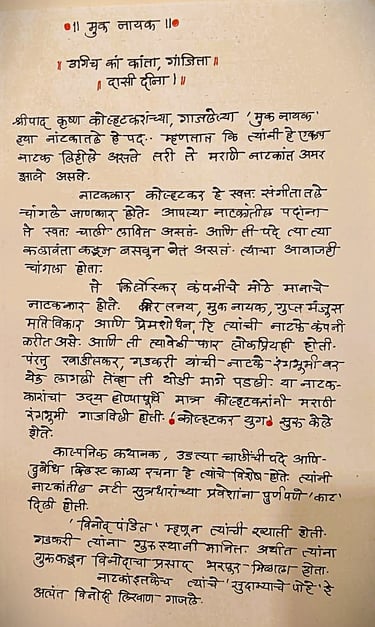 ॥ मुक नायक ॥
॥ उगिच कां कांता, गांजिता ॥
॥ दासी दीना। ॥
श्रीपाद कृष्ण कोल्हटकरांच्या, गाजलेल्या 'मुक नायक'
ह्या नाटकातले हे पद.. म्हणतात कि त्यांनी हे एकच
नाटक लिहीले असते तरी ते मराठी नाटकांत अमर
झाले असते.
नाटककार कोल्हटकर हे स्वतः संगीतातले
चांगले जाणकार होते- आपल्या नाटकांतील पदांना
ते स्वतः चाली लावित असत- आणि ती पदे त्या त्या
कलावंता कडून बसवून घेत असत. त्यांचा आवाजही
चांगला होता.
ते किर्लोस्कर कंपनीचे मोठे मानाचे
नाटककार होते. वीर तनय, मुक नायक, गुप्त मंजुस
मतिविकार आणि प्रेमशोधन, हि त्यांची नाटके कंपनी
करीत असे. आणि ती त्यावेळी फार लोकप्रियही होती.
परंतु खाडीलकर, गडकरी यांची नाटके रंगभूमीवर
येऊ लागली तेंव्हा ती थोडी मागे पडली. या नाटक-
कारांचा उदय होण्यापूर्वी मात्र कोल्हटकरांनी मराठी
रंगभूमी गाजविली होती. 'कोल्हटकर युग' सुरू केले
होते.
काल्पनिक कथानक, उडत्या चालींची पदे आणि-
दुर्बोध क्लिस्ट काव्य रचना हे त्यांचे विशेष होते. त्यांनी
नाटकांतील नटी सुत्रधारांच्या प्रवेशांना पुर्णपणे 'काट'
दिली होती.
'विनोद पंडित' म्हणून त्यांची ख्याती होती.
गडकरी त्यांना गुरू स्थानी मानित. अर्थात त्यांना
गुरूकडून विनोदाचा प्रसाद भरपूर मिळाला होता.
नाटकांइतकेच त्यांचे 'सुदाम्याचे पोहे' हे
अत्यंत विनोदी लिखाण गाजले.